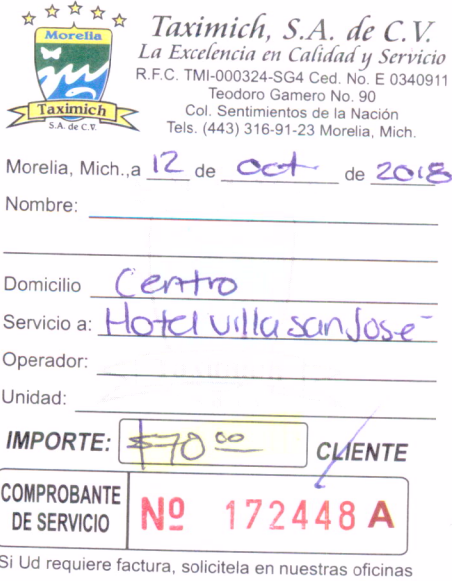 Morelia
Taximich
S.A. de C.V.
Taximich, S.A. de C.V.
La Excelencia en Calidad y Servicio
R.F.C. TMI-000324-SG4 Ced. No. E 0340911
Teodoro Gamero No. 90
Col. Sentimientos de la Nación
Tels. (443) 316-91-23 Morelia, Mich.
Morelia, Mich.,a 12 de oct de 2018
Nombre:
Domicilio Centro
Servicio a: Hotel villa san Jose
Operador:
Unidad:
IMPORTE: $70 00 CLIENTE
COMPROBANTE
DE SERVICIO Nº 172448 A
Si Ud requiere factura, solicitela en nuestras oficinas